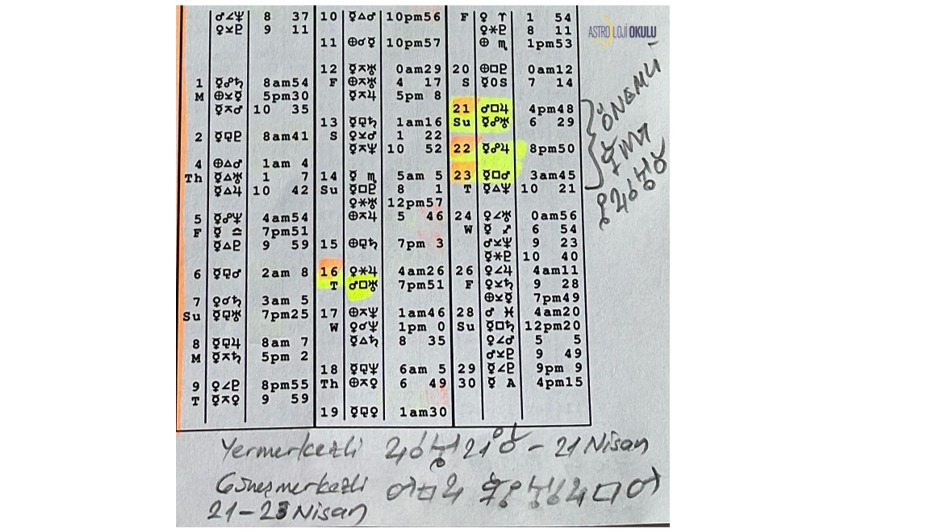 ♂∠♆ 8 37
♀⚻♇ 9 11
1 ☿☍♄ 8am54
M ⊕⚺☿ 5pm30
☿⚻♂ 10 35
2 ☿⚼♇ 8am41
4 ⊕△♂ 1am 4
Th ☿△♅ 1 7
☿△♃ 10 42
5 ☿☍♆ 4am54
F ☿ ♎ 7pm51
☿△♇ 9 59
6 ☿⚼♂ 2am 8
7 ♀☌♄ 3am 5
Su ☿⚼♅ 7pm25
8 ☿⚼♃ 8am 7
M ☿⚻♄ 5pm 2
9 ♀∠♇ 8pm55
T ☿⚻♀ 9 59
10 ☿△♂ 10pm56
11 ⊕☌☿ 10pm57
12 ☿⚻♅ 0am29
F ⊕⚻♅ 4 17
☿⚻♃ 5pm 8
13 ☿⚼♄ 1am16
S ♀⚺♂ 1 22
☿⚻♆ 10 52
14 ☿ ♏ 5am 5
Su ☿□♇ 8 1
♀⚹♅ 12pm57
⊕⚻♃ 5 46
15 ⊕⚼♄ 7pm 3
16 ♀⚹♃ 4am26
T ♂□♅ 7pm51
17 ⊕⚻♆ 1am46
W ♀☌♆ 1pm 0
☿△♄ 8 35
18 ☿⚼♆ 6am 5
Th ⊕⚻♀ 6 49
19 ☿⚼♀ 1am30
F ♀ ♈ 1 54
♀⚹♇ 8 11
⊕ ♏ 1pm53
20 ⊕□♇ 0am12
S ☿0S 7 14
21 ♂□♃ 4pm48
Su ☿☍♅ 6 29
22 ☿☍♃ 8pm50
23 ☿□♂ 3am45
T ☿△♆ 10 21
24 ♀∠♅ 0am56
W ☿ ♐ 6 54
♂⚺♆ 9 23
☿⚹♇ 10 40
26 ♀∠♃ 4am11
F ♀⚺♄ 9 28
⊕⚺☿ 7pm49
28 ♂ ♓ 4am20
Su ☿□♄ 12pm20
♀∠♂ 5 5
♂⚺♇ 9 49
29 ☿∠♇ 9pm 9
30 ☿ A 4pm15
ASTROLOJİ OKULU
ÖNEMLİ
Yermerkezli ♃☌♅ 21° ♉ - 21 Nisan
Güneşmerkezli
21-23 Nisan